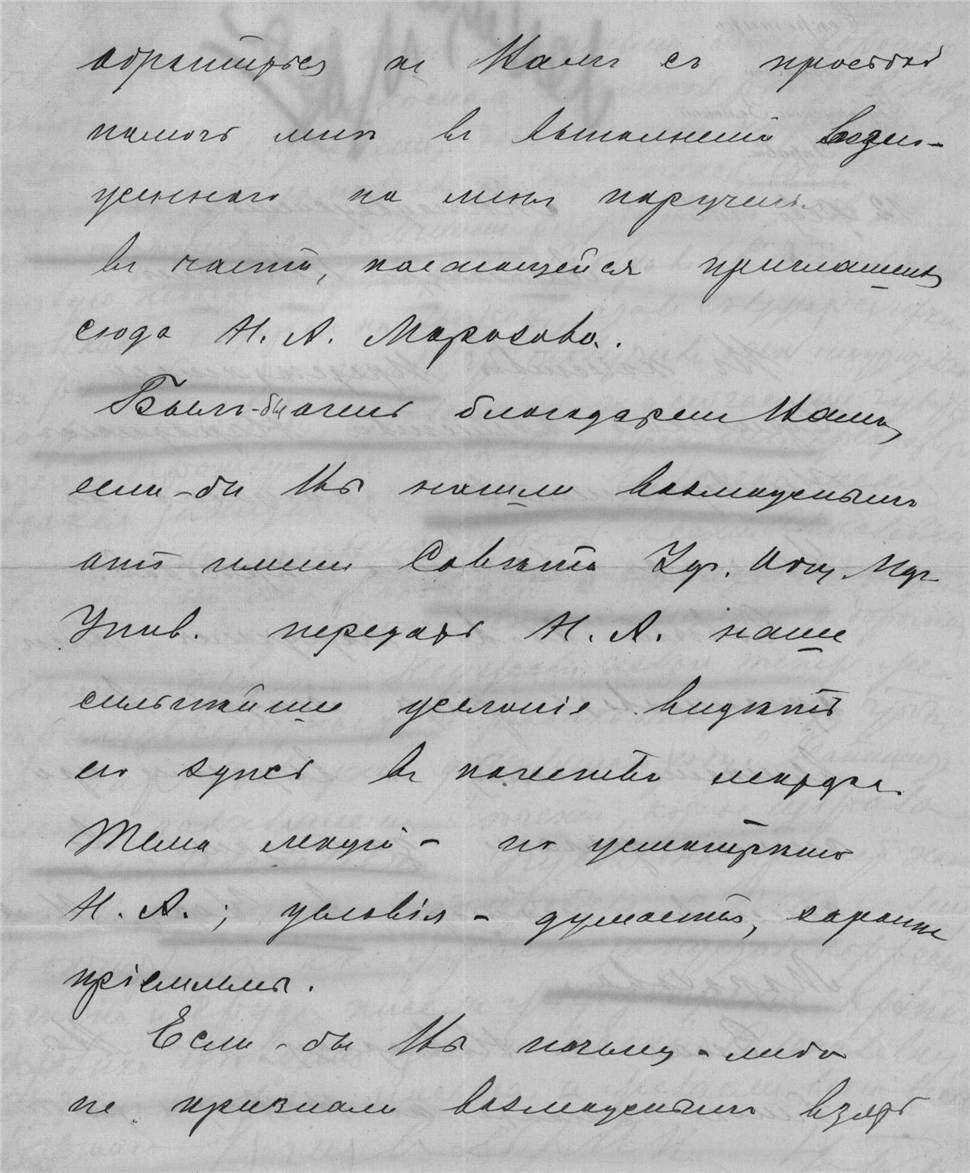 обратиться къ Вамъ съ просьбой
помочь мнѣ въ выполненіи возло-
женнаго на меня порученія
въ части, касающейся приглашенія
сюда Н. А. Морозова.
Былъ-бы очень благодаренъ Вамъ,
если-бы Вы нашли возможнымъ
отъ имени Совѣта Общ. Нар.
Унив. передать Н. А. наше
сильнѣйшее желаніе видѣть
его здѣсь въ качествѣ лектора.
Тема лекцій – по усмотрѣнію
Н. А.; условія – думается, заранѣе
пріемлемы.
Если-бы Вы почему-либо
не признали возможнымъ взять